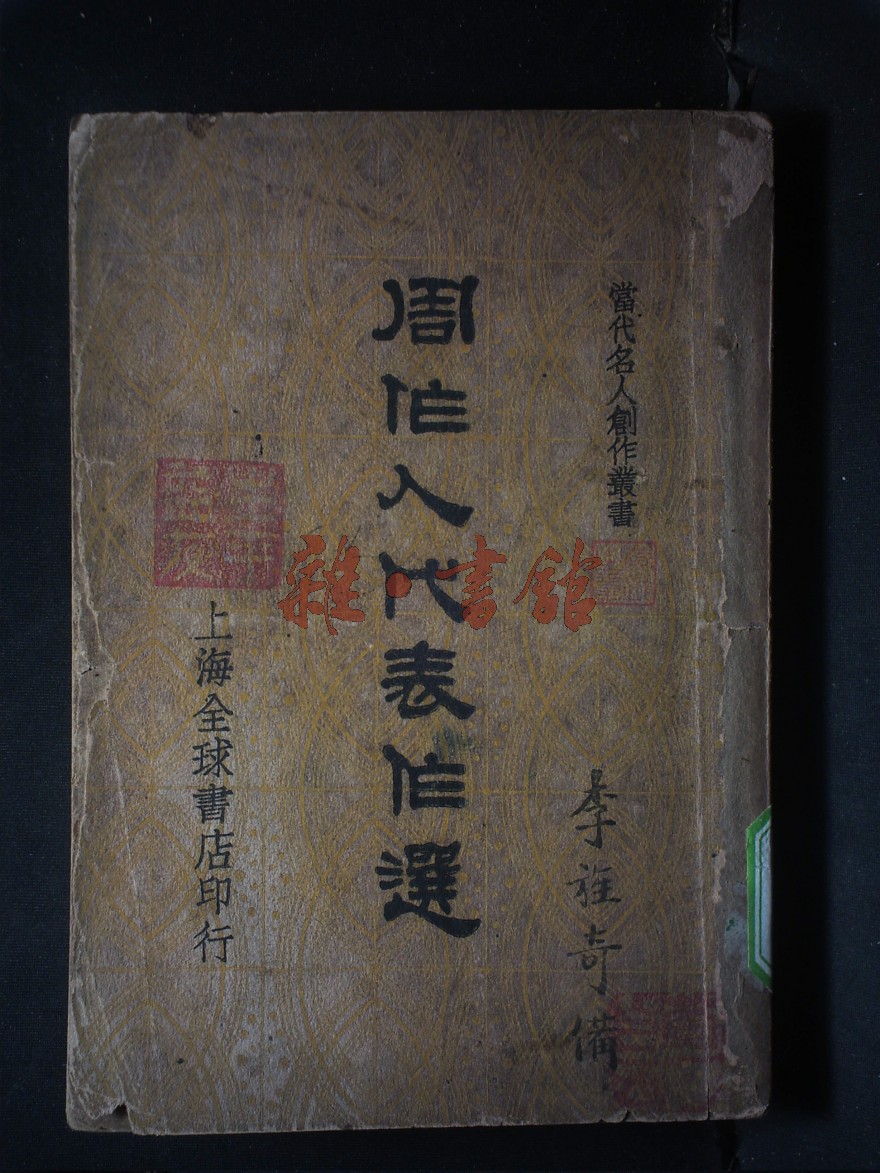 當代名人創作叢書
周作人代表作選
上海全球書店印行
李雅奇備
雜·書館